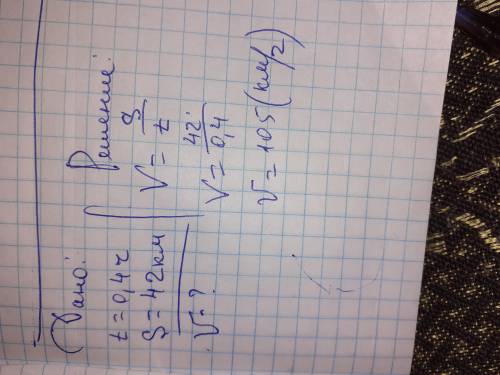 Дано:
t = 0,4 ч
S = 42 км
V - ?
Решение:
V = S/t
V = 42/0,4
V = 105 (км/ч)